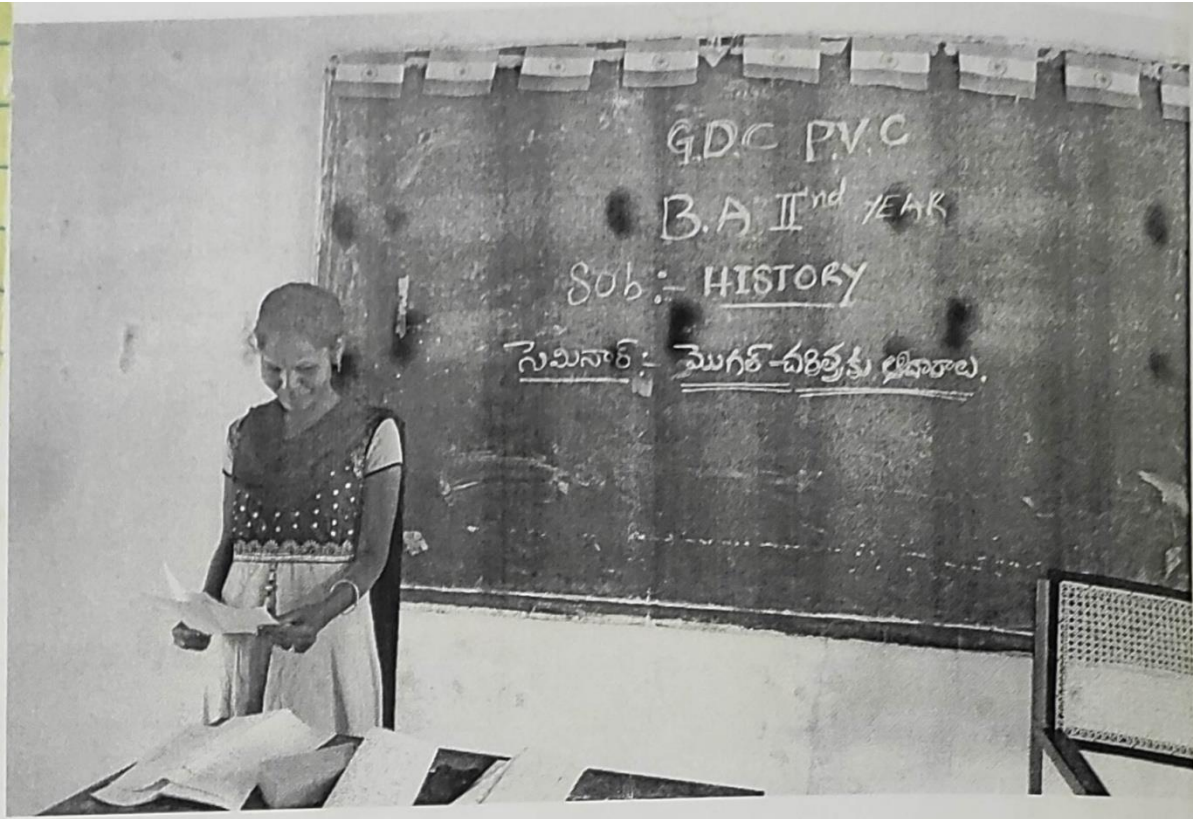 G.D.C P.V.C
B.A IInd YEAR
Sub:- HISTORY
సెమినార్:- మొగల్-చరిత్రకు ఆధారాలు.